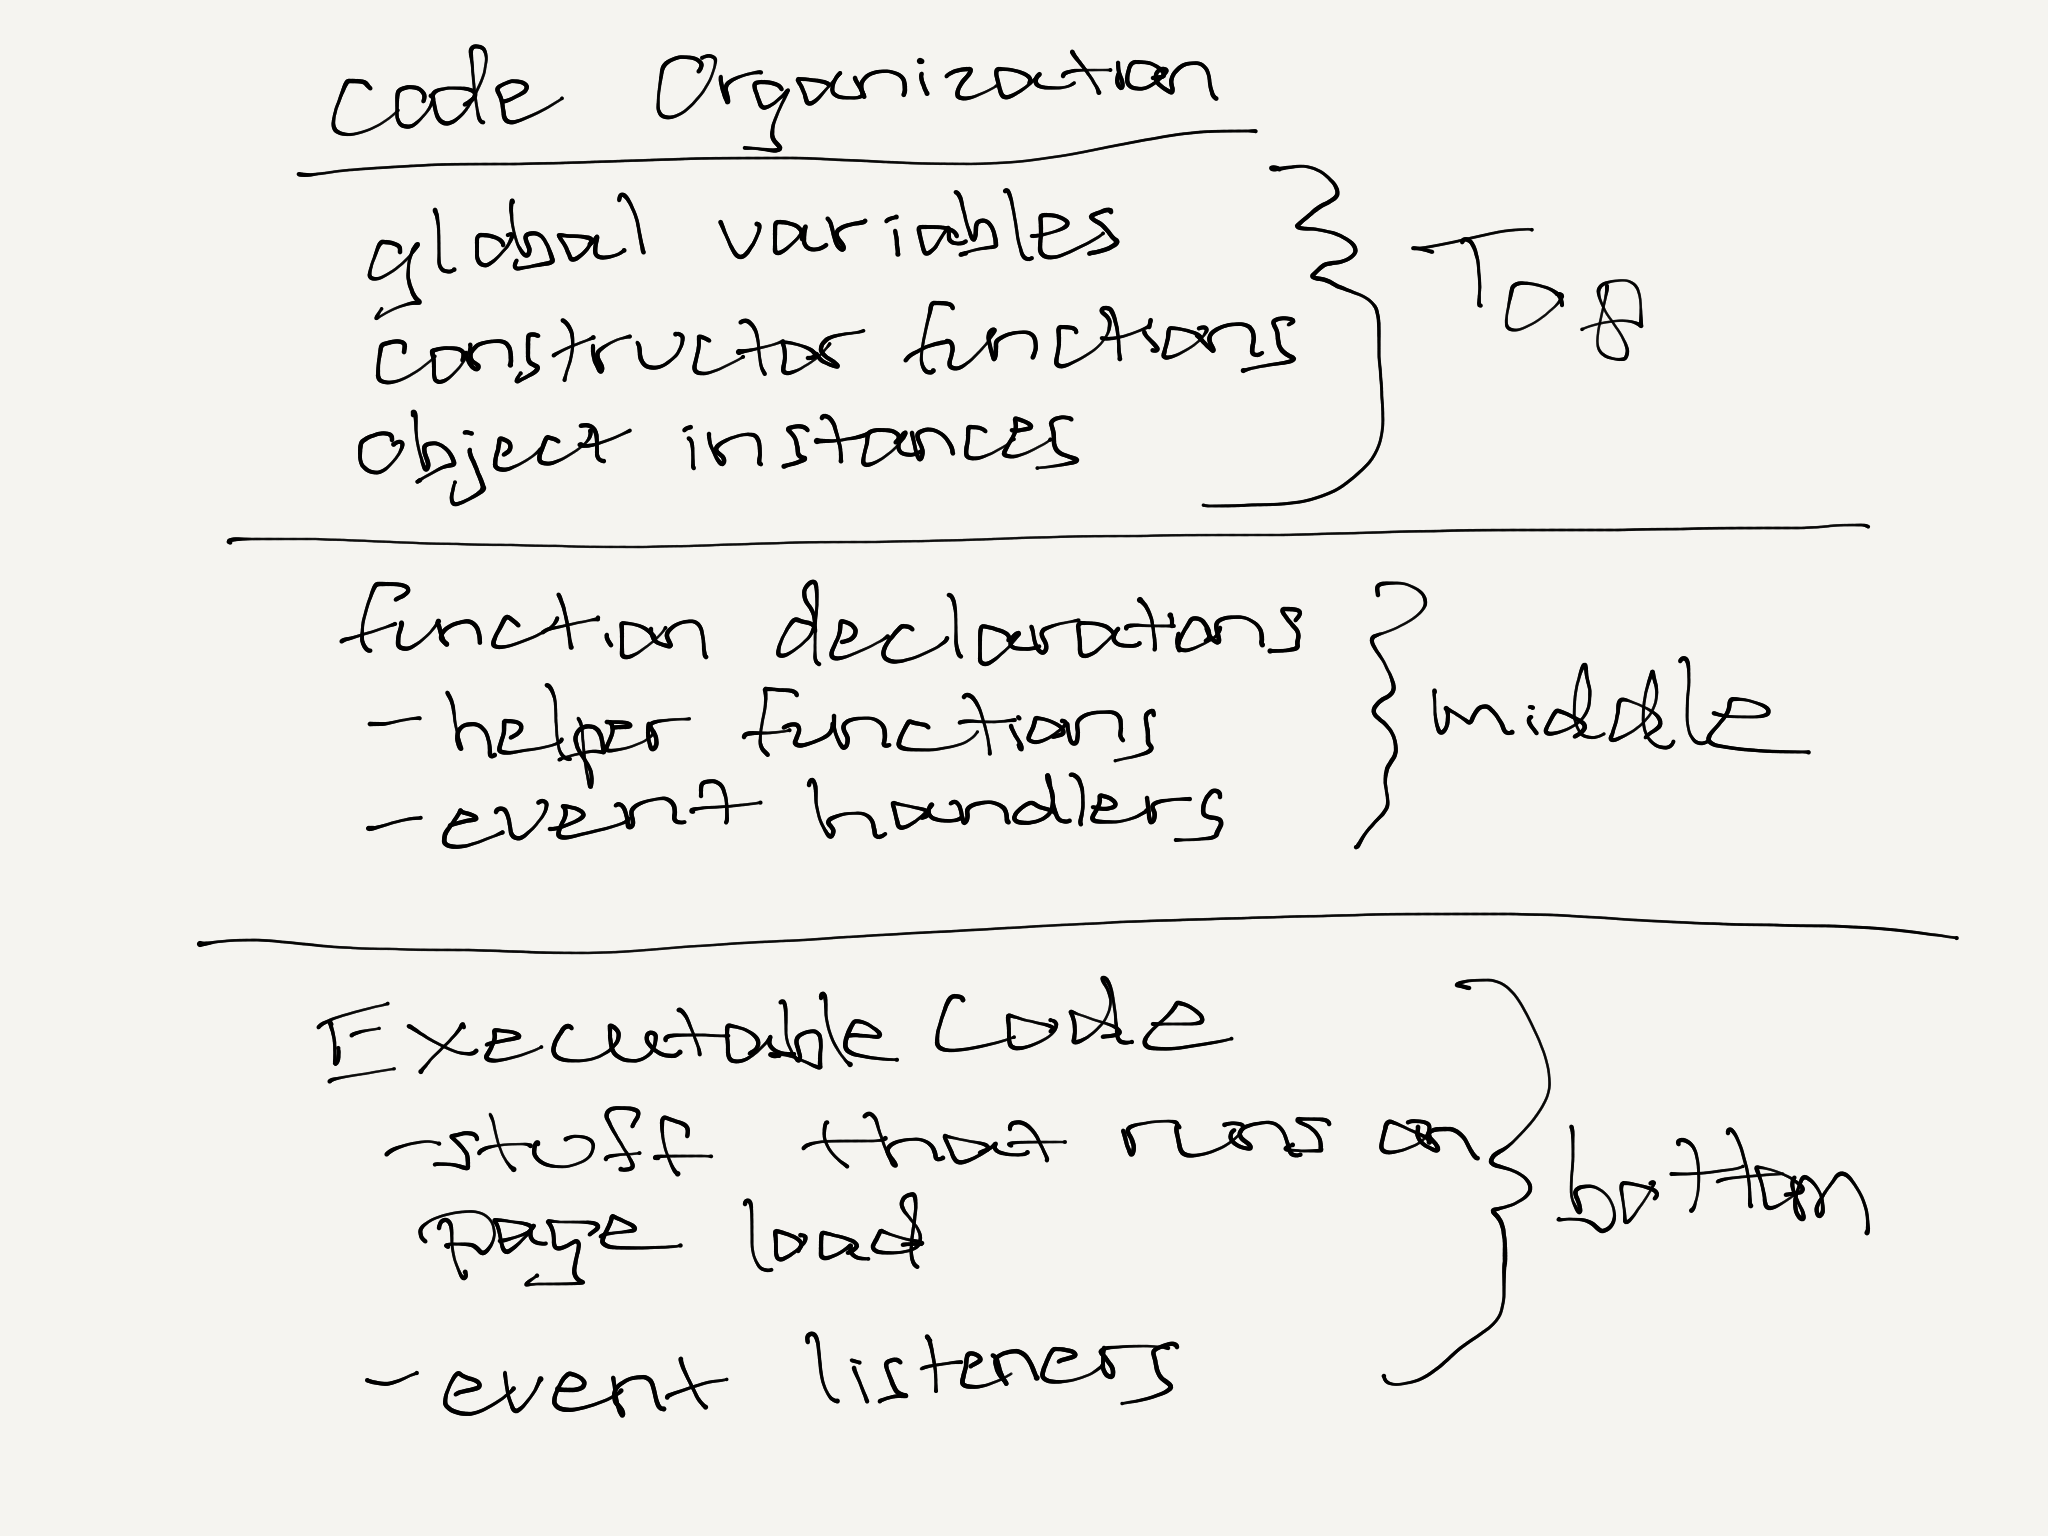 Code Organization
global variables
constructor functions
object instances
Top
function declarations
- helper functions
- event handlers
middle
Executable Code
- stuff that runs on
page load
- event listeners
bottom